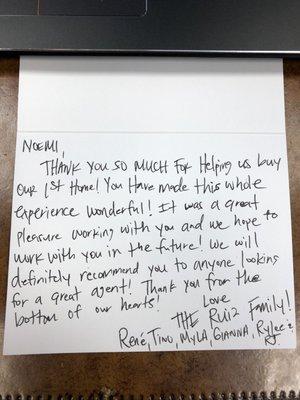 NOEMI,
THANK YOU SO MUCH FOR Helping us buy
our 1st Home! You Have made this whole
experience wonderful! It was a great
pleasure working with you and we hope to
work with you in the future! We will
definitely recommend you to anyone looking
for a great agent! Thank you from the
bottom of our hearts!
Love
THE Ruiz Family!
René, Tino, MYLA, GIANNA, Rylee